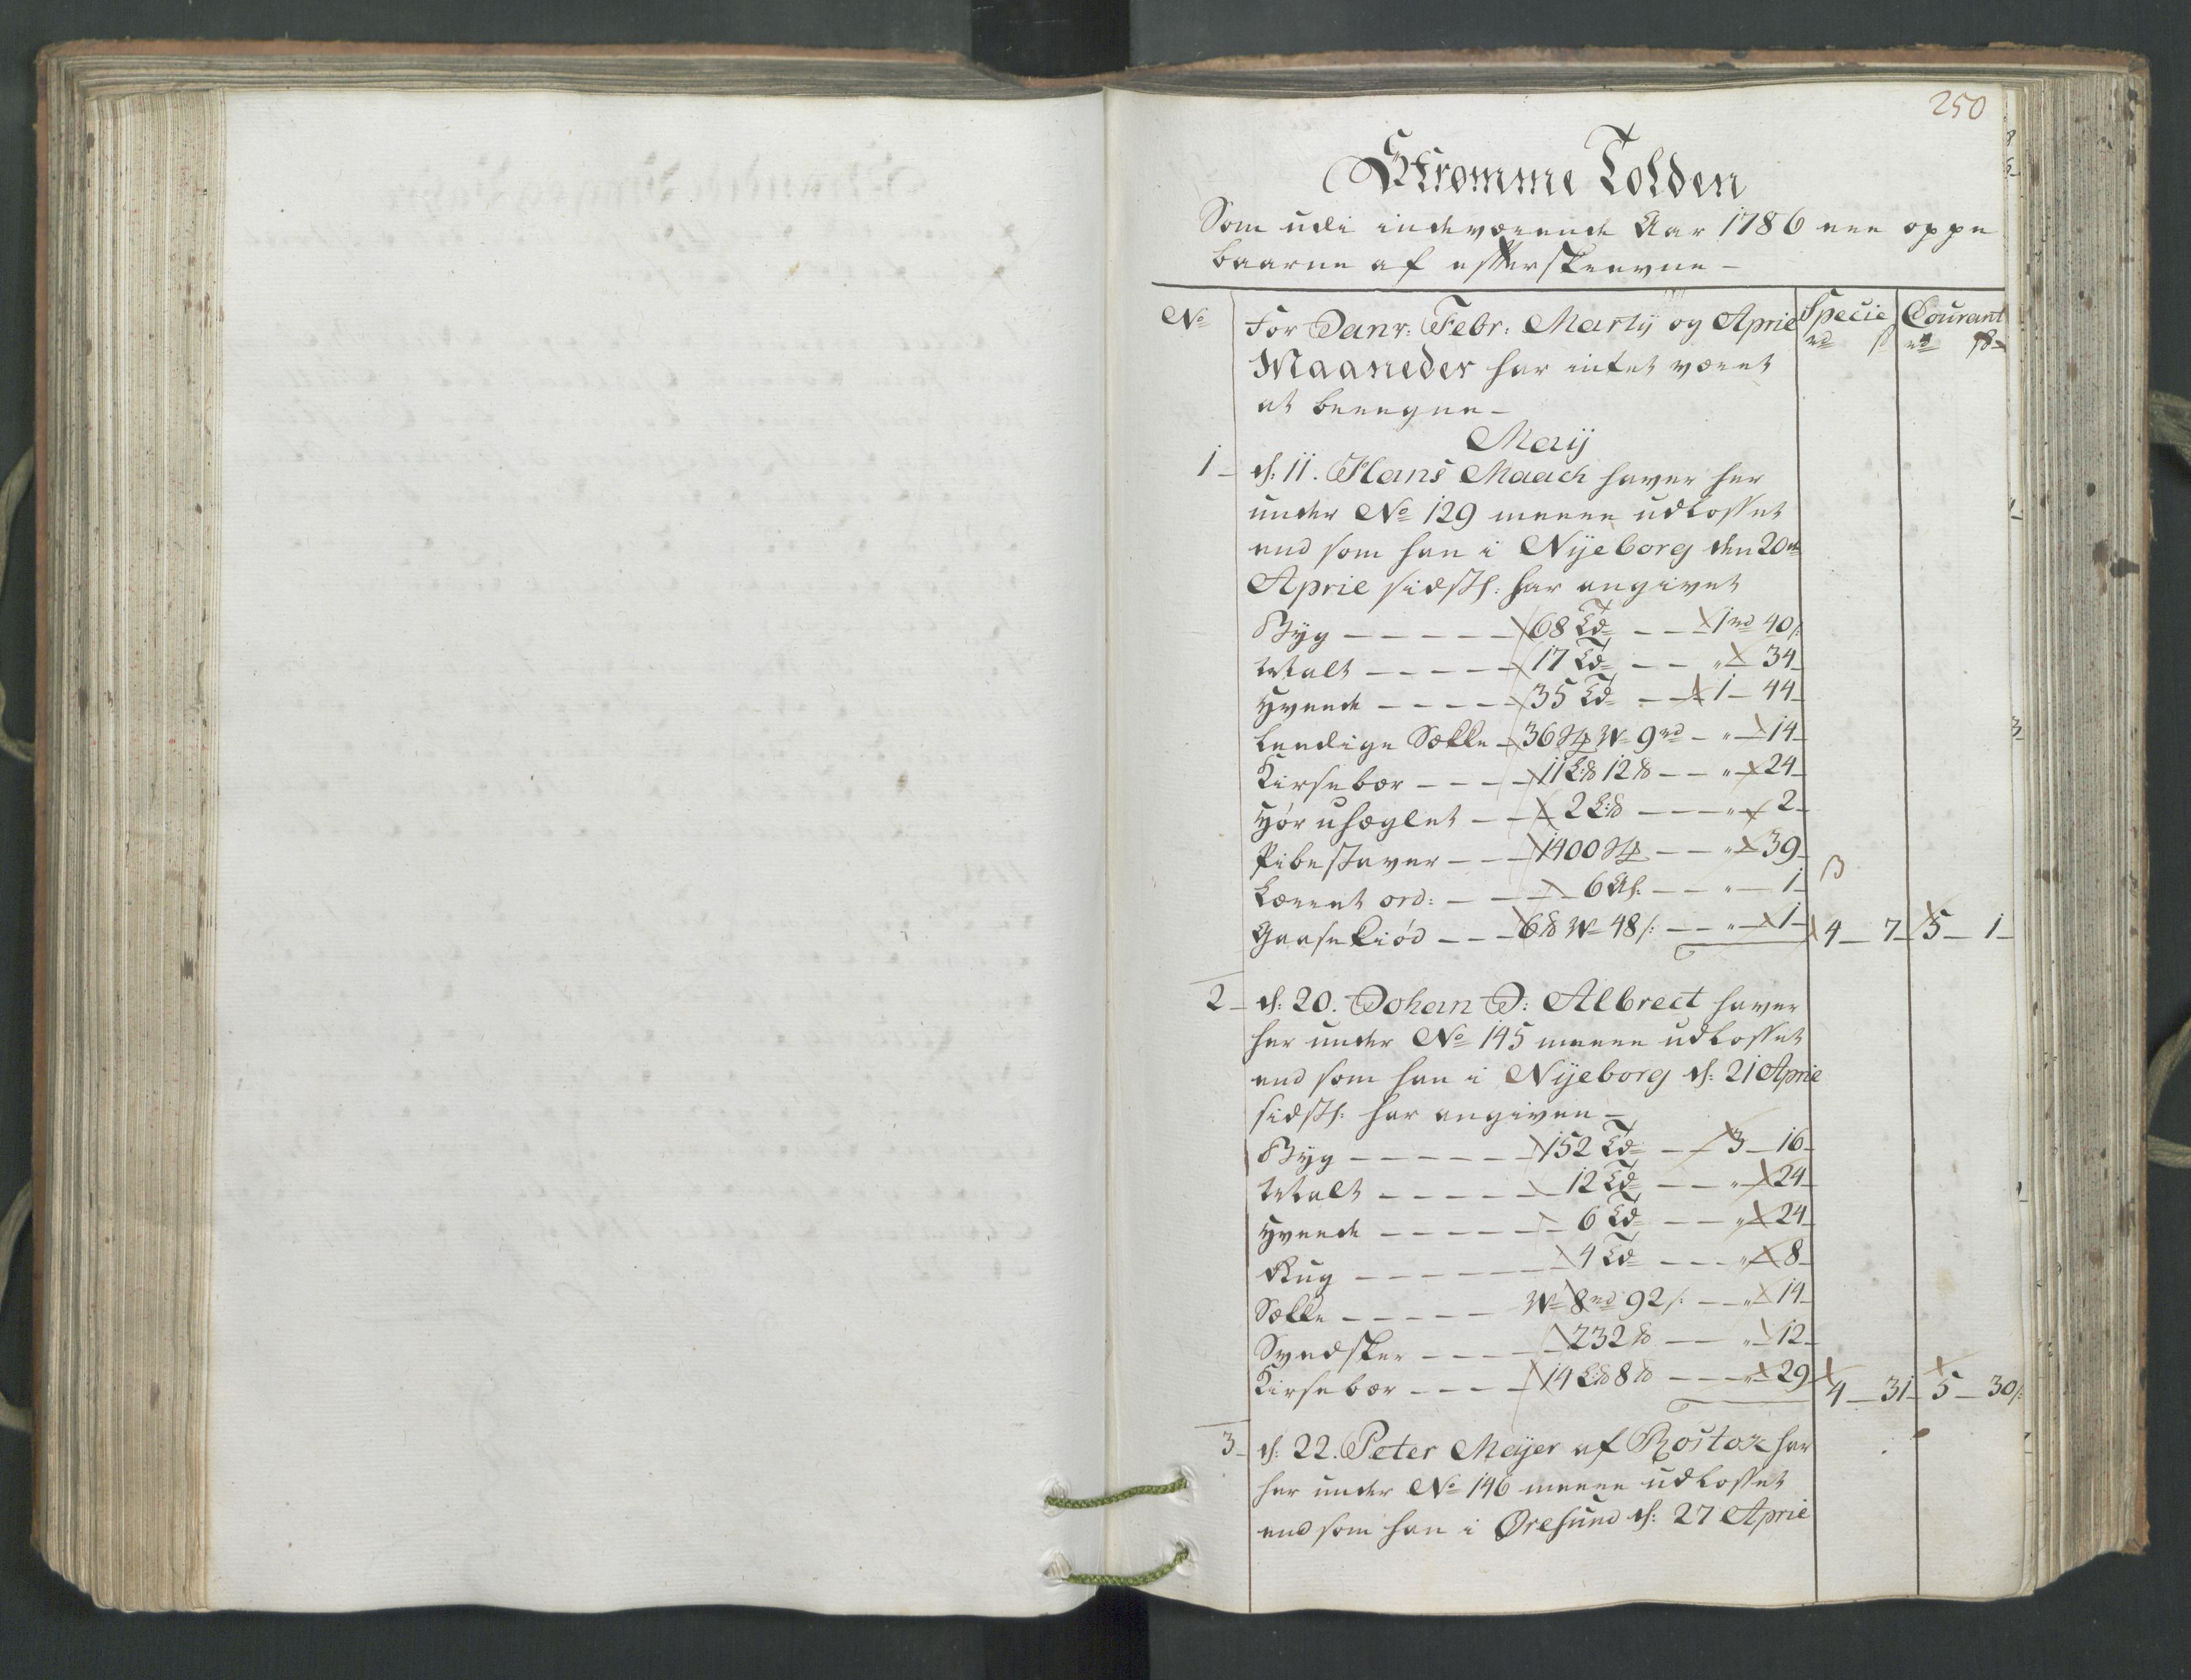 250
Strømme Tolden
Som udi indeværende Aar 1786 ere oppe
baarne af efterskrevne -
No
For Janr: Febr: Martij og April
Specie
Courant
rd ß rd ß
Maaneder har intet været
at beregne -
Maij
1 - d: 11. Hans Maack haver her
under No 129 meere udlosset
end som han i Nijeborg den 20de
April sidstl: har angivet
Byg - 68 Td - 1 rd 40 ß
Malt - 17 Td - " 34 -
Hvede - 35 Td - 1 - 44 -
Leedige Sække - 36 St W 9 rd - " - 14 -
Kirsebær - 11 L℔ 12 ℔ - " - 24 -
Hør uheglet - 2 L℔ - " - 2 -
Pibestaver - 1400 St - " - 39 -
Lærret ord: - 6 Al: - " - 1 -
Gaasekiød - 6 ℔ W 48 ß - " - 1 - 4 - 7 - 5 - 1 -
2 - d: 20. Johan J: Albrect haver
her under No 145 meere udlosset
end som han i Nijeborg d: 21 April
sidstl: har angiven -
Byg - 152 Td - 3 - 16 -
Malt - 12 Td - " - 24 -
Hvede - 6 Td - " - 24 -
Rug - 4 Td - " - 8 -
Sække - W 8 rd 92 ß - " - 14 -
Svedsker - 232 ℔ - " - 12 -
Kirsebær - 14 L℔ 8 ℔ - " - 29 - 4 - 31 - 5 - 30 ß
3 - d: 22. Peter Meijer af Rostox har
her under No 146 meere udlosset
end som han i Øresund d: 27 April